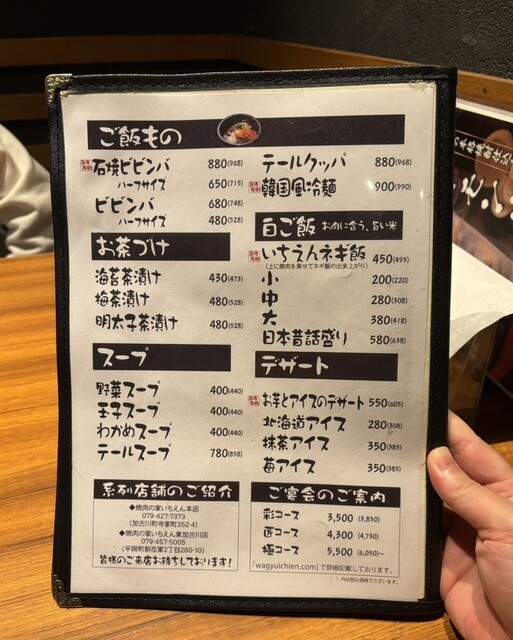 ご飯もの
石焼ビビンバ 880(968)
ハーフサイズ 650(715)
ビビンバ 680(748)
ハーフサイズ 480(528)
お茶づけ
海苔茶漬け 430(473)
梅茶漬け 480(528)
明太子茶漬け 480(528)
スープ
野菜スープ 400(440)
玉子スープ 400(440)
わかめスープ 400(440)
テールスープ 780(858)
テールクッパ 880(968)
韓国風冷麺 900(990)
白ご飯 お肉に合う、旨い米
いちえんネギ飯 450(495)
(上に焼肉を乗せてネギ飯の出来上がり)
小 200(220)
中 280(308)
大 380(418)
日本昔話盛り 580(638)
デザート
お芋とアイスのデザート 550(605)
北海道アイス 280(308)
抹茶アイス 350(385)
苺アイス 350(385)
系列店舗のご紹介
◆焼肉の家いちえん本店
079-427-7373
(加古川町寺家町352-4)
◆焼肉の家いちえん東加古川店
079-457-5005
(平岡町新在家2丁目280-10)
皆様のご来店お待ちしております!
ご宴会のご案内
彩コース 3,500 (3,850)
匠コース 4,300 (4,730)
極コース 5,500 (6,050)～
「wagyuichien.com」で詳細記載しております。
( )内は税込価格でございます。